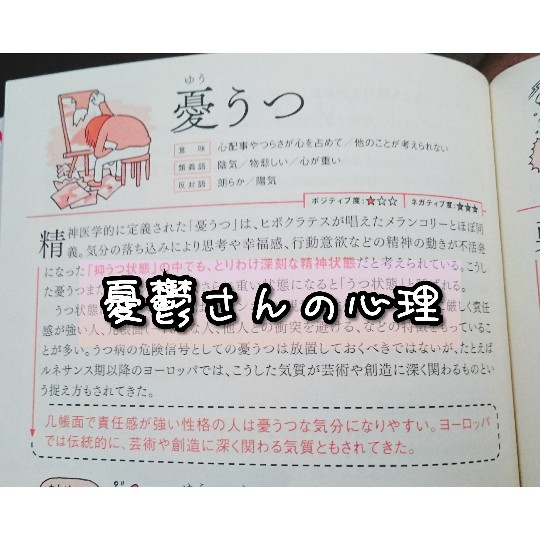 ゆう
憂うつ
意味 心配事やつらさが心を占めて/他のことが考えられない
類義語 陰気/物悲しい/心が重い
反対語 朗らか/陽気
ポジティブ度:★☆☆ ネガティブ度:★★★
精神医学的に定義された「憂うつ」は、ヒポクラテスが唱えたメランコリーとほぼ同
義。気分の落ち込みにより思考や幸福感、行動意欲などの精神の動きが不活発
になった「抑うつ状態」の中でも、とりわけ深刻な精神状態だと考えられている。こうし
た憂うつ
重い状態になると「うつ状態」
憂鬱さんの心理
うつ状態
厳しく責任
感が強い人、
他人との衝突を避ける、などの特徴をもっているこ
とが多い。うつ病の危険信号としての憂うつは放置しておくべきではないが、たとえば
ルネサンス期以降のヨーロッパでは、こうした気質が芸術や創造に深く関わるものとい
う捉え方もされてきた。
几帳面で責任感が強い性格の人は憂うつな気分になりやすい。ヨーロッパ
では伝統的に、芸術や創造に深く関わる気質ともされてきた。